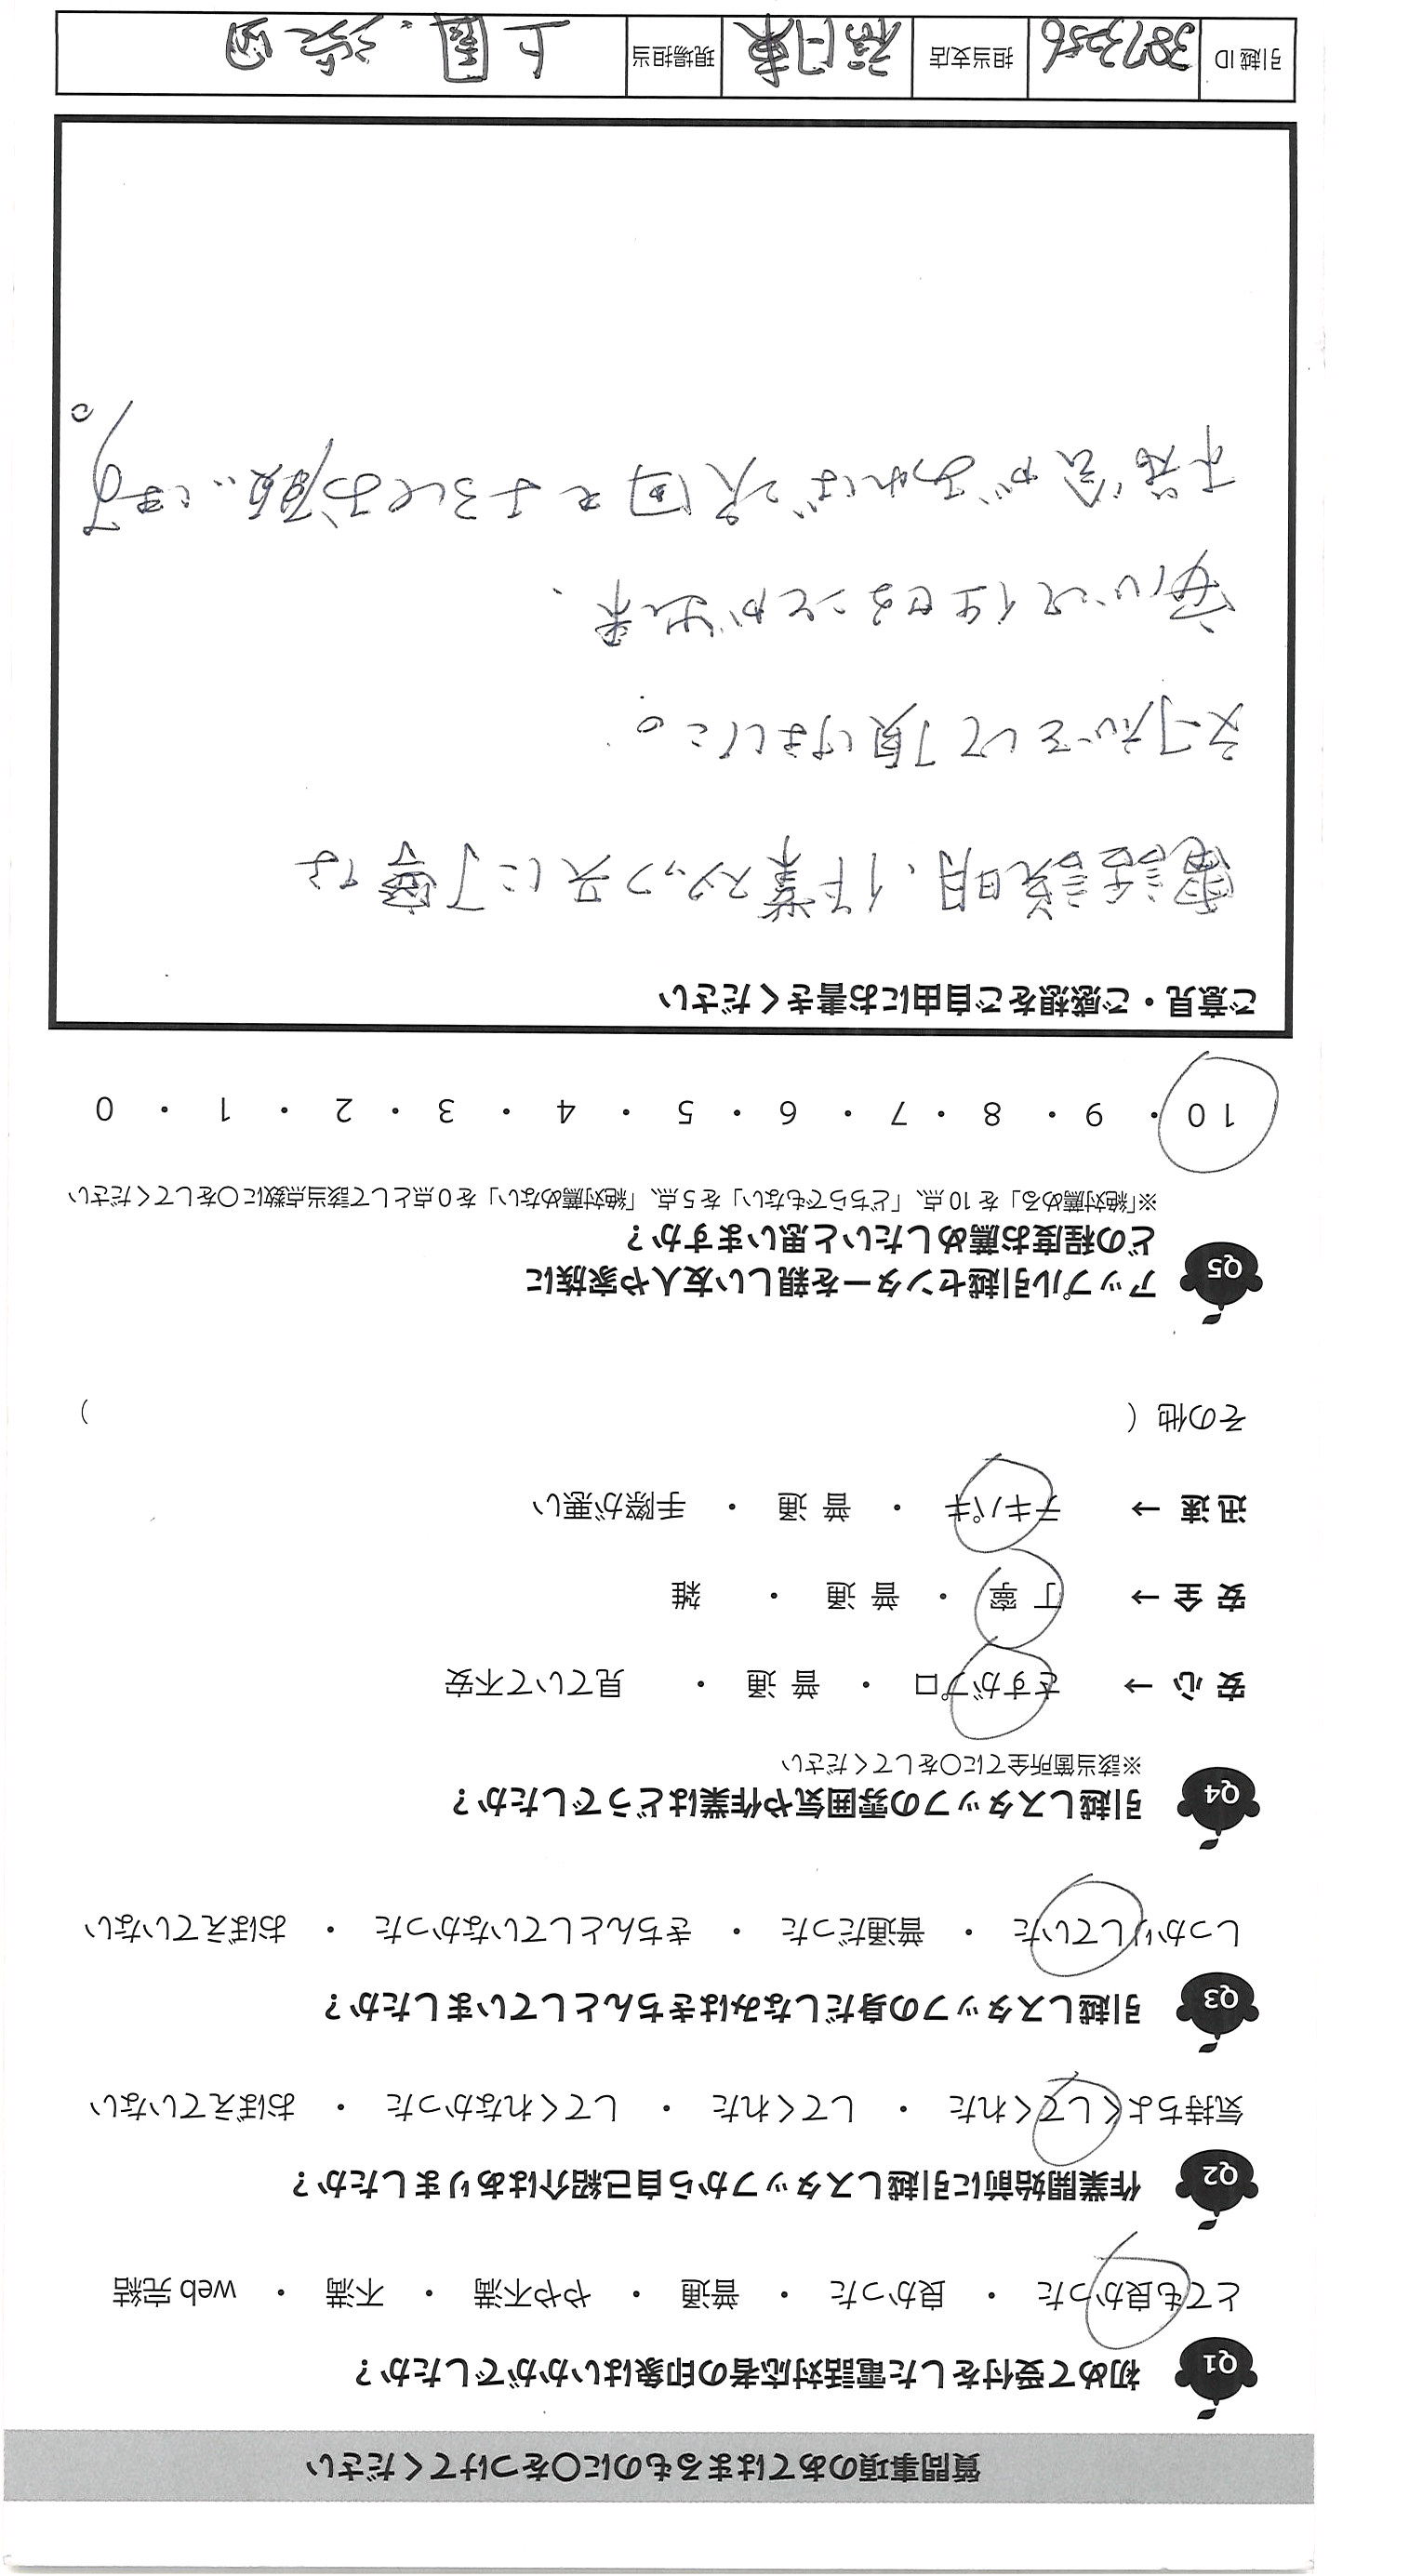 質問事項のあてはまるものに〇をつけてください
Q1 初めて受付をした電話対応者の印象はいかがでしたか？
とても良かった ・ 良かった ・ 普通 ・ やや不満 ・ 不満 ・ web 完結
Q2 作業開始前に引越しスタッフから自己紹介はありましたか？
気持ちよくしてくれた ・ してくれた ・ してくれなかった ・ おぼえていない
Q3 引越しスタッフの身だしなみはきちんとしていましたか？
しっかりしていた ・ 普通だった ・ きちんとしていなかった ・ おぼえていない
Q4 引越しスタッフの雰囲気や作業はどうでしたか？
※該当箇所全てに〇をしてください
安心→ さすがプロ ・ 普通 ・ 見ていて不安
安全→ 丁寧 ・ 普通 ・ 雑
迅速→ テキパキ ・ 普通 ・ 手際が悪い
その他（ ）
Q5 アップル引越センターを親しい友人や家族に
どの程度お薦めしたいと思いますか？
※「絶対薦める」を10点、「どちらでもない」を5点、「絶対薦めない」を0点として該当点数に〇をしてください
10 ・ 9 ・ 8 ・ 7 ・ 6 ・ 5 ・ 4 ・ 3 ・ 2 ・ 1 ・ 0
ご意見・ご感想をご自由にお書きください
電話説明、作業スタッフ共に丁寧な
対応をして頂けました。
安心して任せることが出来、
機会があれば次回もよろしくお願いします。
引越ID 3873256 担当支店 福岡東 現場担当 上園